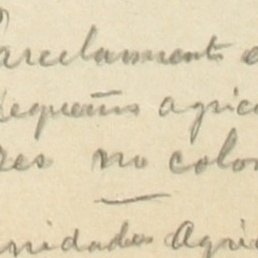 arcelamiento e
equeños agric
res no colon
nidades Agric